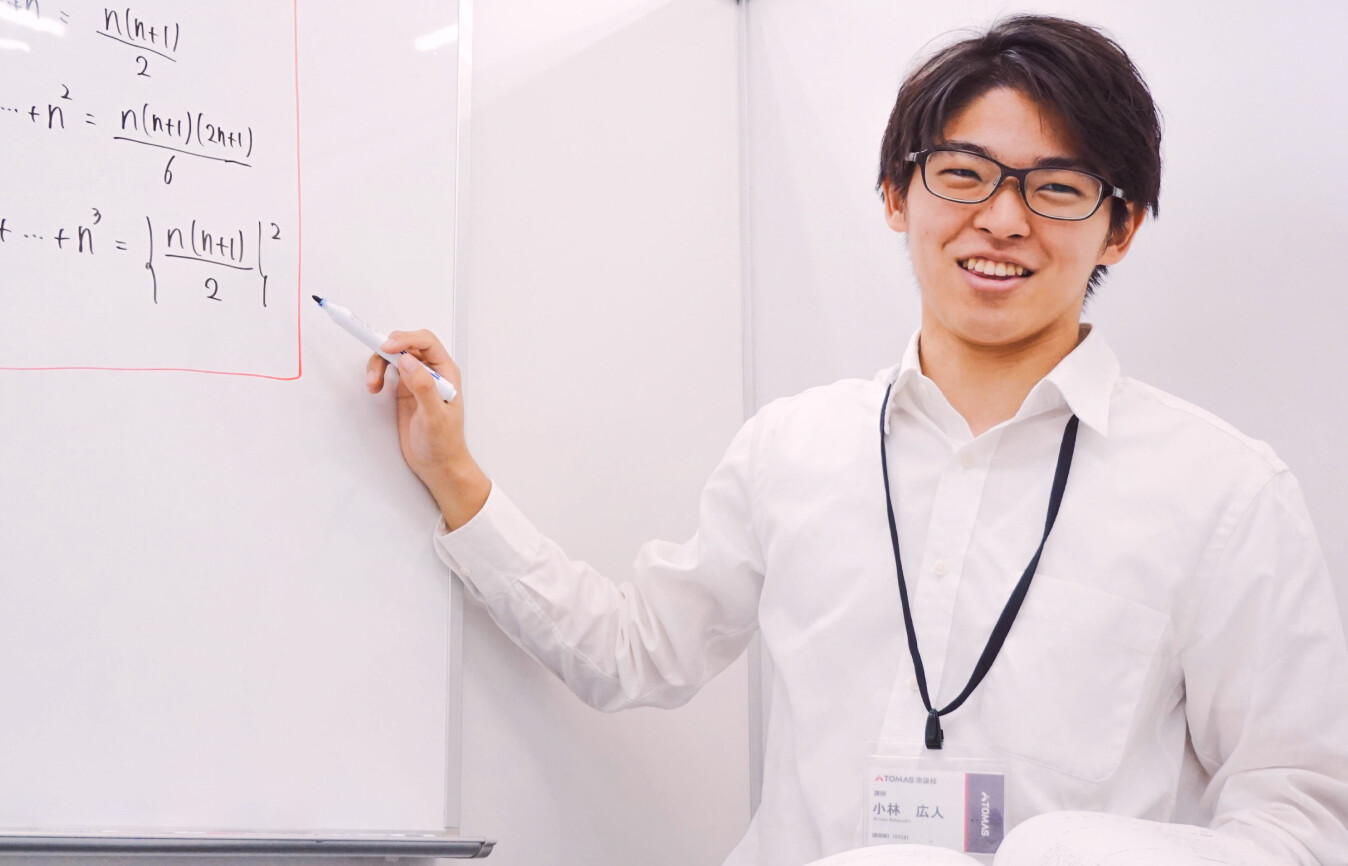 +n = n(n+1)/2
⋯+n² = n(n+1)(2n+1)/6
+⋯+n³ = {n(n+1)/2}²
TOMAS
講師
小林 広人
TOMAS